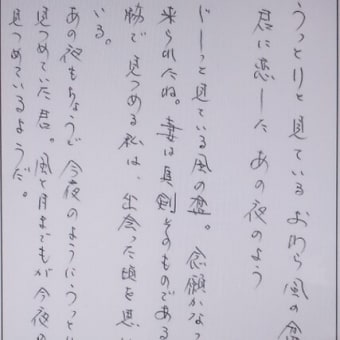 うっとりと見ている おわら 風の盆
君に恋した あの夜のよう
じーっと見ている風の盆。念願かなっ
来られたね。妻は真剣そのものである
脇で見つめる私は、出会った頃を思い
いる。
あの夜もちょうど今夜のようにうっと
見つめていた君。風と月までもが今夜
見つめているようだ。